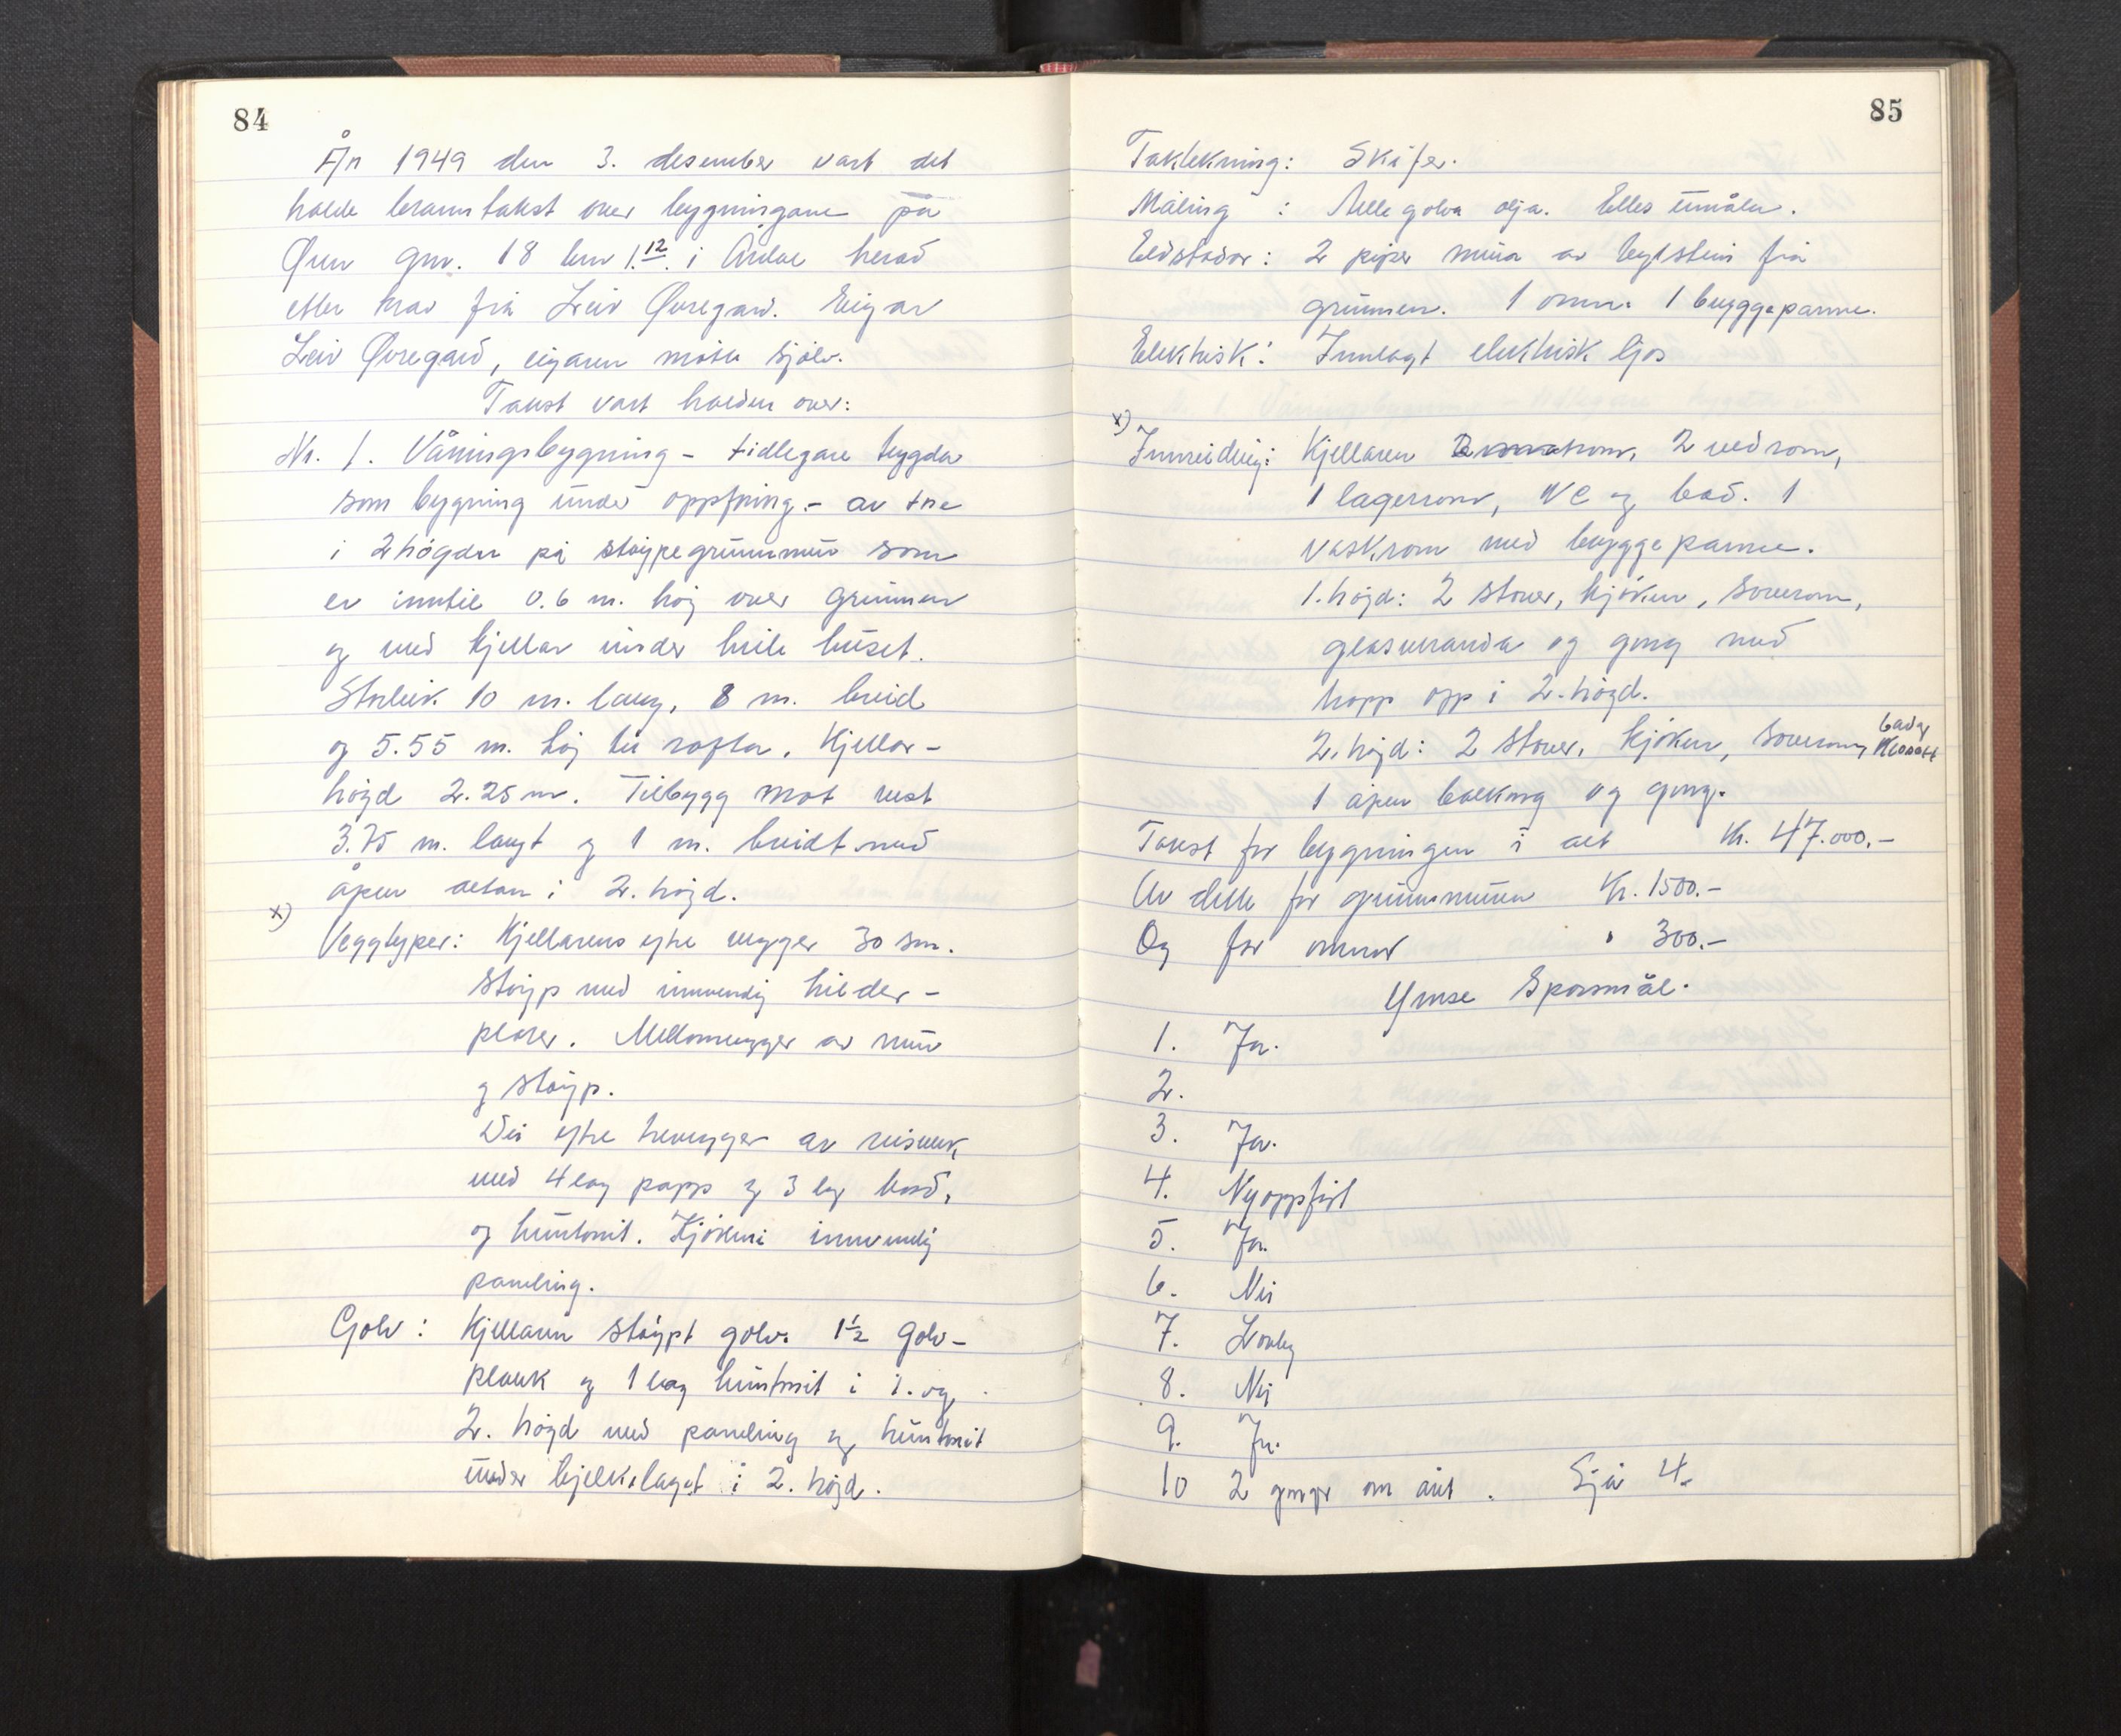 84
År 1949 den 3. desember vart det
halde branntakst over bygningane på
Øren gnr. 18 bnr 1.12. i Årdal herad
etter krav frå Leiv Øvregard. Eigar
Leiv Øvregard, eigaren møtte sjølv.
Takst vart halden over:
Nr. 1. Våningsbygning – tidlegare trygda
som bygning under oppføring – av tre
i 2 høgder på støypegrunnmur som
er inntil 0.6 m. høg over grunnen
og med kjellar under heile huset.
Storleik 10 m. lang, 8 m. breid
og 5.55 m. høg til rafta. Kjellar-
høgd 2.25 m. Tilbygg mot vest
3.75 m. langt og 1 m. breidt med
åpen altan i 2. høgd.
x)
Veggtyper: Kjellarens ytre vegger 30 sm.
støyp med innvendig
plater. Mellomvegger av mur
og støyp.
Dei ytre trevegger av reisverk
med 4 lag papp og 3 lag bord,
og huntonit. Kjøkeni innvendig
paneling.
Golv: Kjellaren støypt golv. 1½ Golv-
plank og 1 lag huntonit i 1. og
2. høgd med paneling og huntonit
under bjelkelaget i 2. høgd.
85
Taktekning: Skifer.
Måling : Alle golva olja. Elles umåla.
Eldstadar: 2 piper mura av teglstein frå
grunnen. 1 omn. 1 bryggepanne.
Elektrisk: Innlagt elektrisk ljos
x)
Innreiding: Kjellaren 2 vedrom,
1 lagerrom, WC og bad. 1
vaskrom med bryggepanne.
1. høgd: 2 stover, kjøken, soverom,
glasveranda og gang med
trapp opp i 2. høgd.
2. høgd: 2 stover, kjøken, soverom, bad og klosett
1 åpen balkong og gang.
Takst for bygningen i alt Kr. 47.000.–
Av dette for grunnmuren Kr. 1500.–
Og for omnar " 300.–
Ymse Spørsmål.
1. Ja.
2.
3. Ja.
4. Nyoppført
5. Ja.
6. Nei
7. Lovleg
8. Nei
9. Ja.
10 2 gonger om året. Sjå 4.